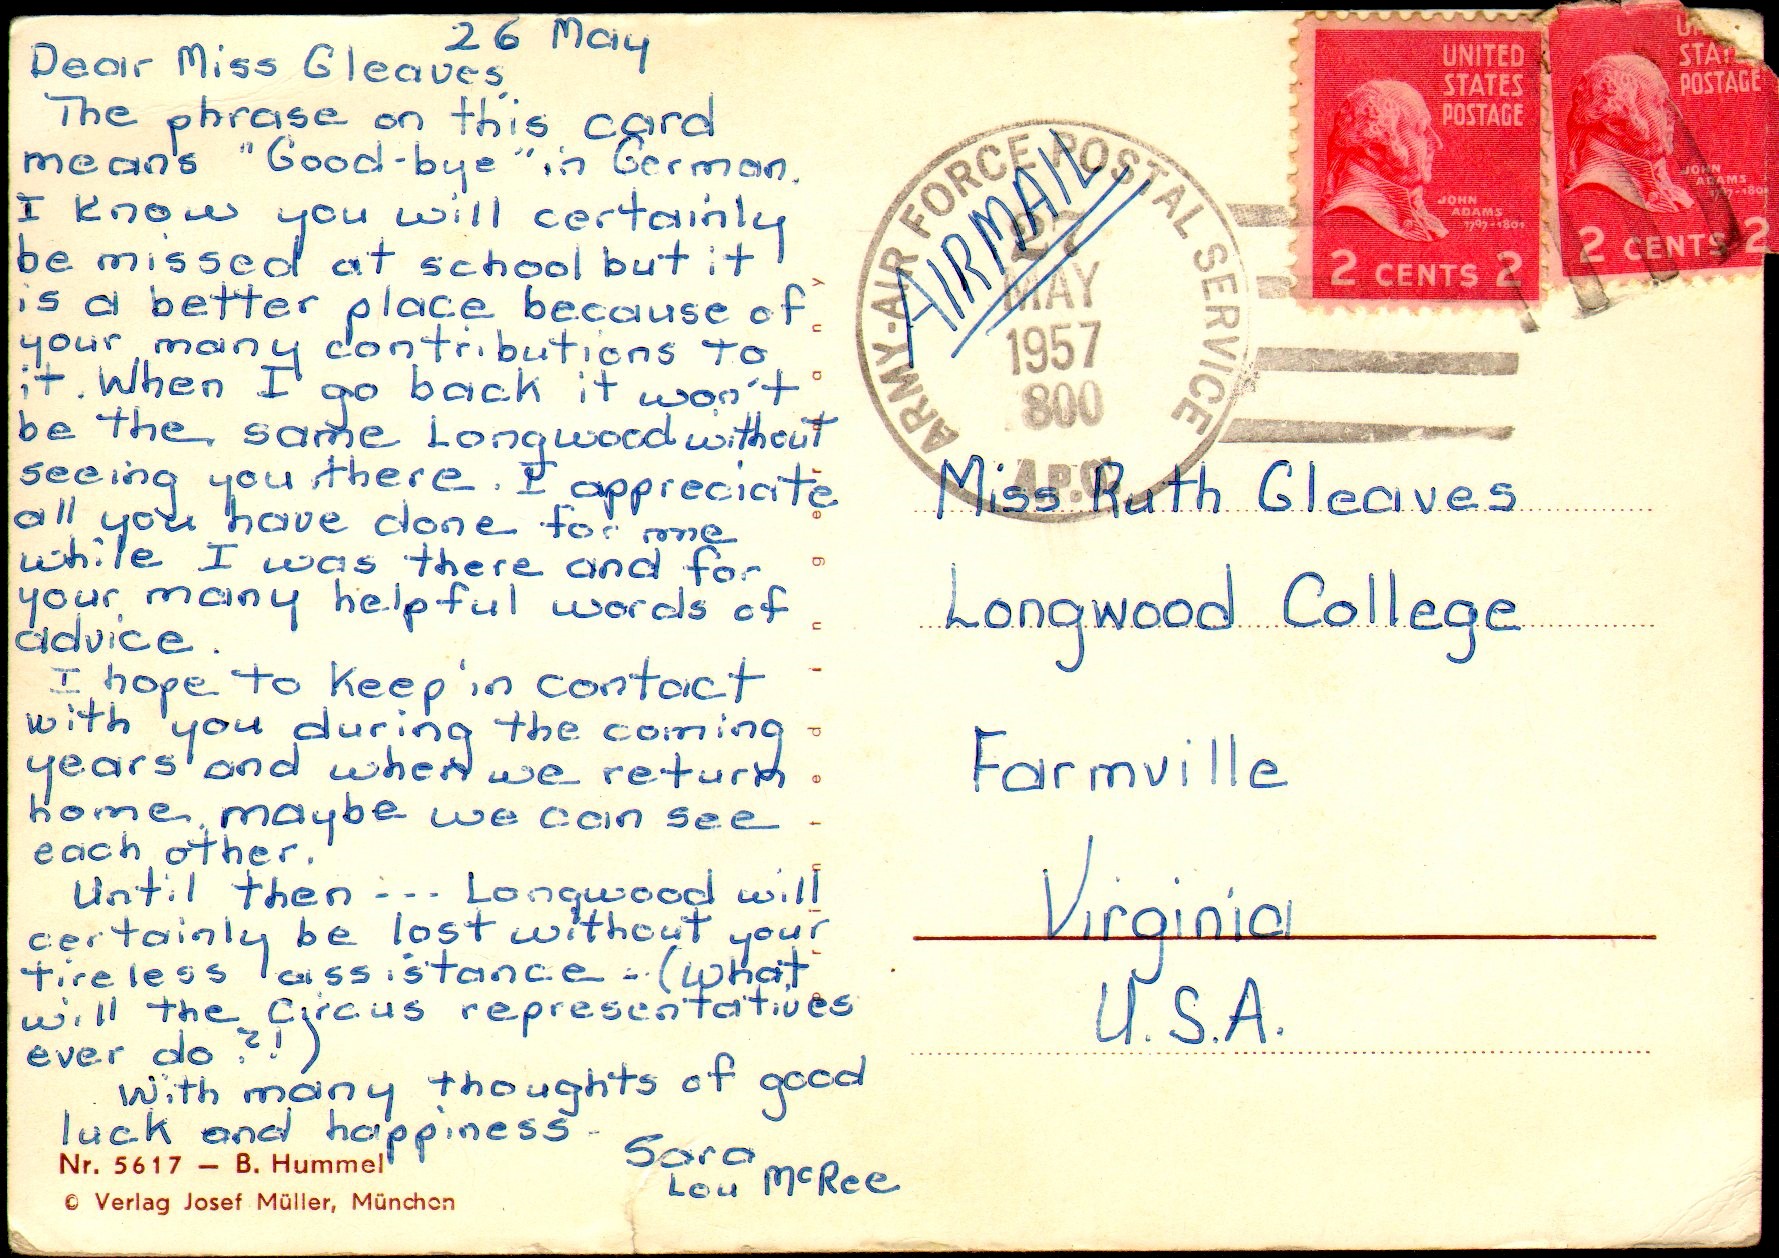 26 May
Dear Miss Gleaves,
The phrase on this card
means "Good-bye" in German.
I know you will certainly
be missed at school but it
is a better place because of
your many contributions to
it. When I go back it won't
be the same Longwood without
seeing you there. I appreciate
all you have done for me
while I was there and for
your many helpful words of
advice.
I hope to keep in contact
with you during the coming
years and when we return
home, maybe we can see
each other.
Until then --- Longwood will
certainly be lost without your
tireless assistance - (what
will the Circus representatives
ever do?!)
With many thoughts of good
luck and happiness -
Sara
Lou McRee
Nr. 5617 — B. Hummel
© Verlag Josef Müller, München
printed in germany
ARMY-AIR FORCE POSTAL SERVICE
27
MAY
1957
800
A.P.O.
AIRMAIL
UNITED
STATES
POSTAGE
JOHN
ADAMS
1797-1801
2 CENTS 2
STATES
POSTAGE
JOHN
ADAMS
2 CENTS 2
Miss Ruth Gleaves
Longwood College
Farmville
Virginia
U.S.A.